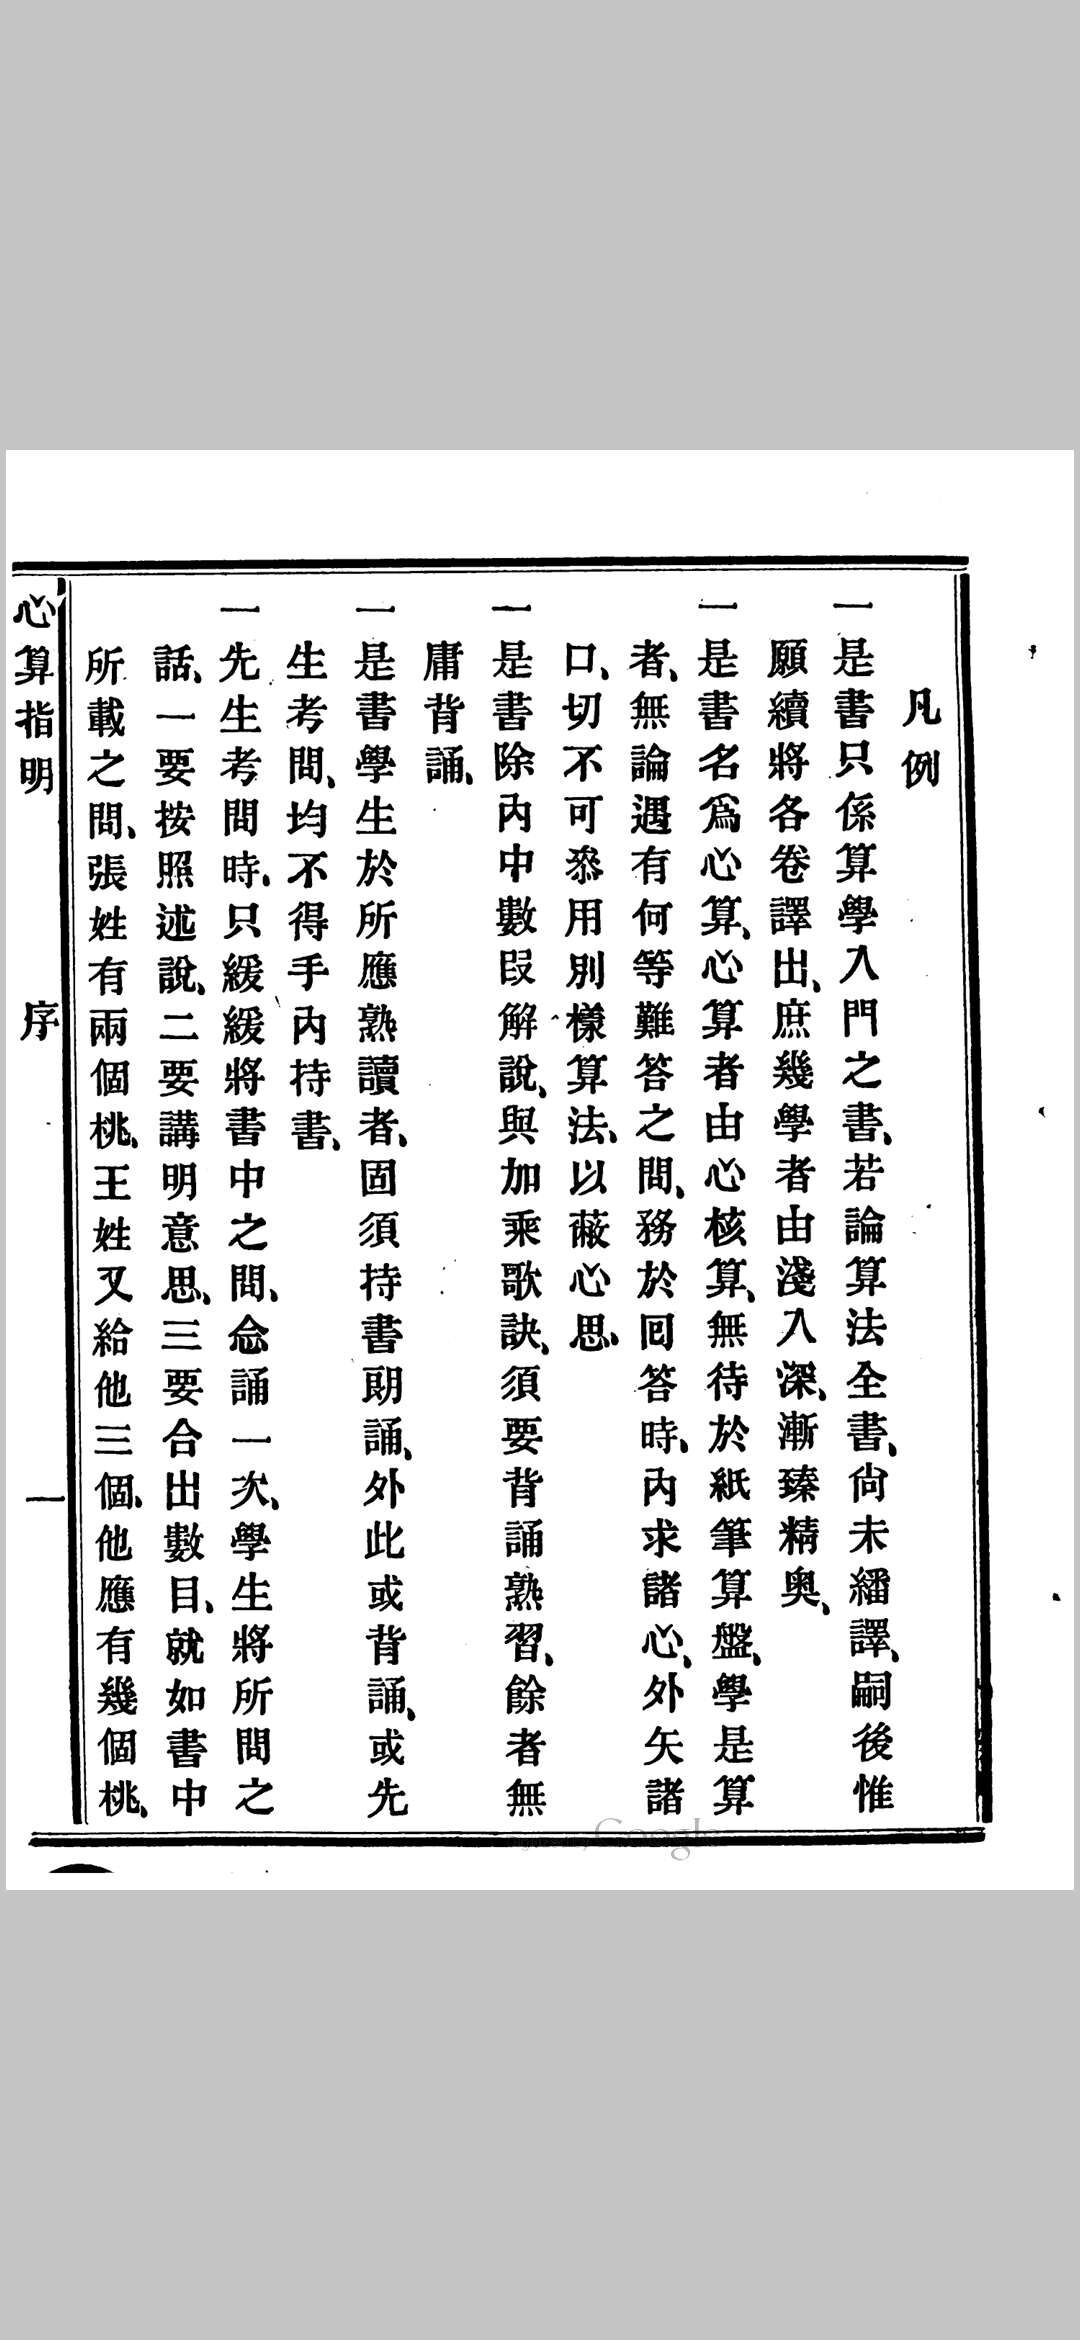 凡例
一是書只係算學入門之書、若論算法全書、尙未繙譯、嗣後惟
願續將各卷譯出、庶幾學者由淺入深、漸臻精奧、
一是書名爲心算、心算者由心核算、無待於紙筆算盤、學是算
者、無論遇有何等難答之問、務於回答時、內求諸心、外矢諸
口、切不可叅用別樣算法、以蔽心思、
一是書除內中數段解說、與加乘歌訣、須要背誦熟習、餘者無
庸背誦、
一是書學生於所應熟讀者、固須持書朗誦、外此或背誦、或先
生考問、均不得手內持書、
一先生考問時、只緩緩將書中之問、念誦一次、學生將所問之
話、一要按照述說、二要講明意思、三要合出數目、就如書中
所載之問、張姓有兩個桃、王姓又給他三個、他應有幾個桃、
心算指明 序 一
Google